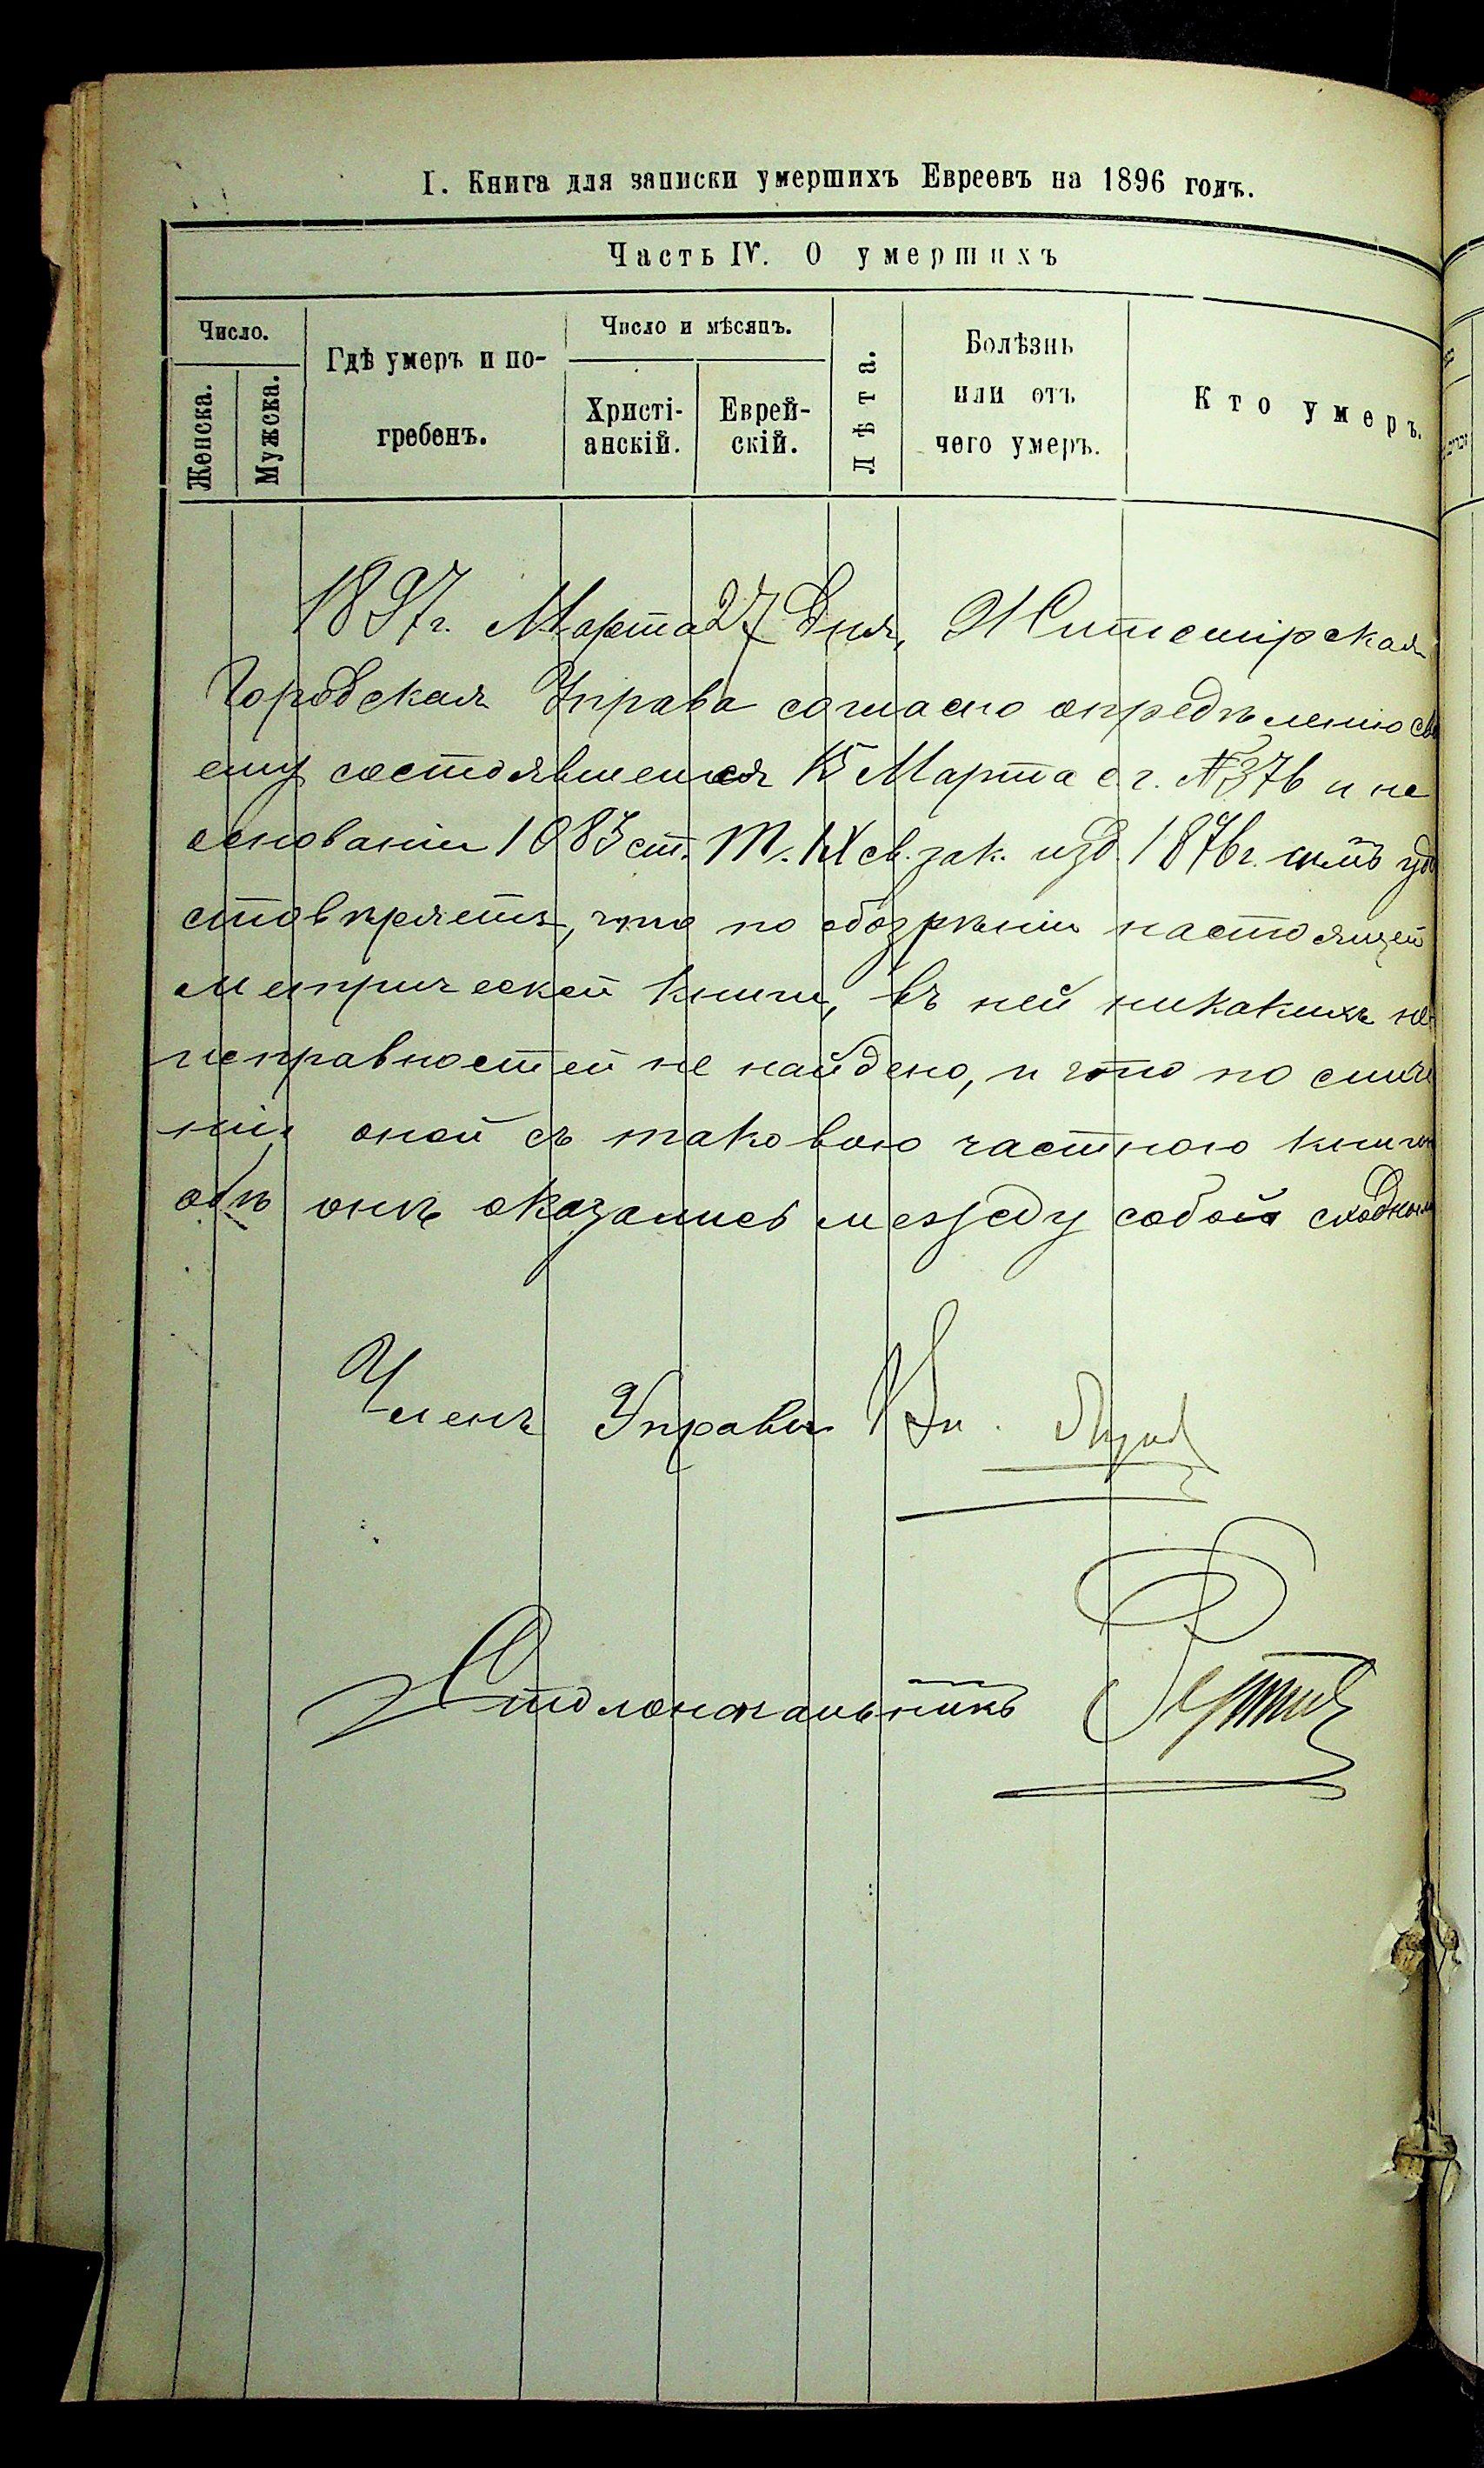 I. Книга для записки умершихъ Евреевъ на 1896 годъ.
Часть IV. О умершихъ
Число.
Женска.
Мужска.
Гдѣ умеръ и по-
гребенъ.
Число и мѣсяцъ.
Христі-
анскій.
Еврей-
скій.
Лѣта.
Болѣзнь
или отъ
чего умеръ.
Кто умеръ.
1897 г. Марта 27 дня, Житомірская
Городская Управа согласно опредѣленію сво
ему состоявшемся 15 Марта с. г. № 376 и на
основаніи 1083 ст. Т. IX св. зак. изд. 1876 г. симъ удо
стовѣряетъ, что по обозрѣніи настоящей
метрической книги, въ ней никакихъ не
исправностей не найдено, и что по сличе
нія оной съ таковою частною книгою
обѣ онѣ оказались между собой сходными
Членъ Управы
Столоначальникъ